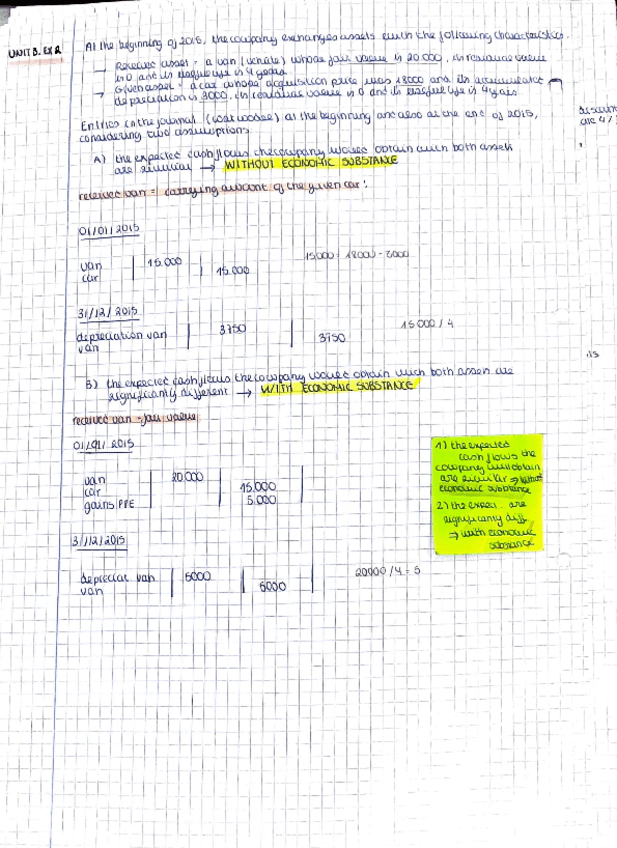 UNIT 3. EX 2
At the beginning of 2015, the company exchanges assets with the following characteristics.
→ Received asset - a van (vehicle) whose fair value is 20.000, its residual value
is 0 and its useful life is 4 years
→ Given asset - a car whose acquisition price was 18000 and its accumulated
depreciation is 3000, its residual value is 0 and its useful life is 4 years
Entries in the journal at the beginning and also at the end of 2015,
considering two assumptions.
A) the expected cash flows the company would obtain with both assets
are similar → WITHOUT ECONOMIC SUBSTANCE
received van = carrying amount of the given car!
01/01/2015
van 15.000 15000 = 18000 - 3000
car 15.000
31/12/2015
depreciation van 3750 15000/4
van 3750
B) the expected cash flows the company would obtain with both assets are
significantly different → WITH ECONOMIC SUBSTANCE
received van = fair value
01/01/2015
van 20.000
car 15.000
gains PPE 5.000
31/12/2015
depreciat. van 5000 20000/4 = 5
van 5000
1) the expected
cash flows the
company will obtain
are similar ⇒ without
economic substance
2) the expec. are
significantly diff.
⇒ with economic
substance